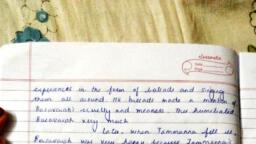 classmate
Date
Page
experiences in the form of ballads and singing
them all around the
Basavaiah's cruelty and meanness. This humiliated
Basavaiah very much.
Later, when Tammanna fell ill,
Basavaiah was very happy because Tammanna's